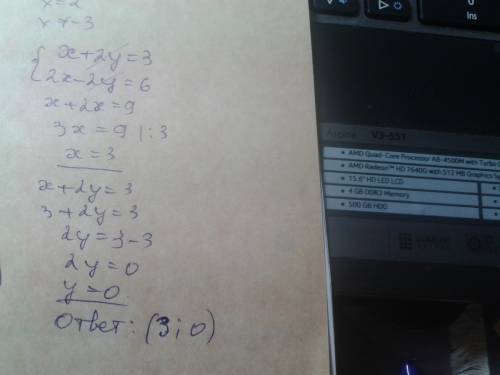 x=2
{x+2y=3
2x-2y=6
x+2x=9
3x=9 |:3
x=3
x+2y=3
3+2y=3
2y=3-3
2y=0
y=0
Ответ: (3;0)
Ins
Aspire V3-551
• AMD Quad-Core Processor A8-4500M with Turbo
• AMD Radeon™ HD 7640G with 512 MB Graphics
• 15.6" HD LED LCD
• 4 GB DDR3 Memory
• 500 GB HDD